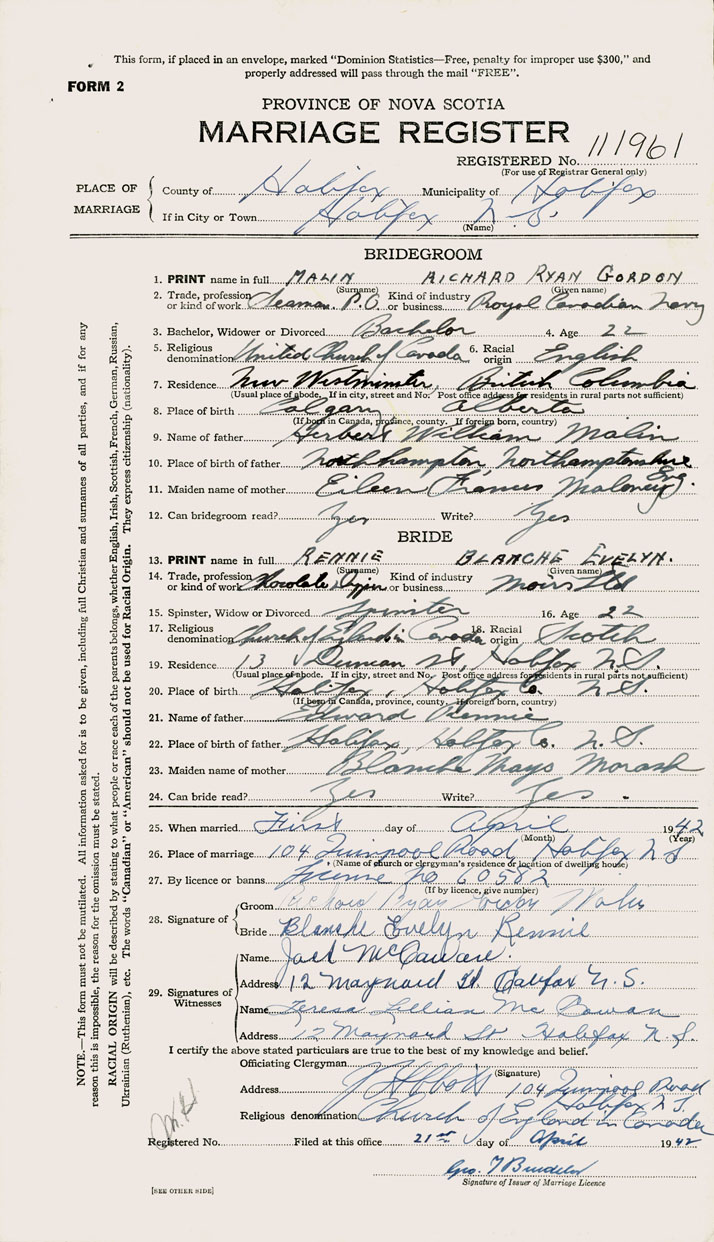 This form, if placed in an envelope, marked "Dominion Statistics—Free, penalty for improper use $300," and
properly addressed will pass through the mail "FREE".
FORM 2
PROVINCE OF NOVA SCOTIA
MARRIAGE REGISTER
REGISTERED No. 111961
(For use of Registrar General only)
PLACE OF MARRIAGE
County of Halifax Municipality of Halifax
If in City or Town Halifax N.S.
(Name)
BRIDEGROOM
1. PRINT name in full MALIN RICHARD RYAN GORDON
(Surname) (Given name)
2. Trade, profession or kind of work Seaman P.O. Kind of industry or business Royal Canadian Navy
3. Bachelor, Widower or Divorced Bachelor 4. Age 22
5. Religious denomination United Church of Canada 6. Racial origin English
7. Residence New Westminster, British Columbia
(Usual place of abode. If in city, street and No. Post office address for residents in rural parts not sufficient)
8. Place of birth Calgary Alberta
(If born in Canada, province, county. If foreign born, country)
9. Name of father Herbert William Malin
10. Place of birth of father Northhampton Northamptonshire Eng.
11. Maiden name of mother Eileen Francis Maloney
12. Can bridegroom read? Yes Write? Yes
BRIDE
13. PRINT name in full RENNIE BLANCHE EVELYN.
(Surname) (Given name)
14. Trade, profession or kind of work Chocolate Dipper Kind of industry or business Moirs Ltd
15. Spinster, Widow or Divorced Spinster 16. Age 22
17. Religious denomination Church of England in Canada 18. Racial origin Scotch
19. Residence 13 Duncan St, Halifax N.S.
(Usual place of abode. If in city, street and No. Post office address for residents in rural parts not sufficient)
20. Place of birth Halifax, Halifax Co. N.S.
(If born in Canada, province, county. If foreign born, country)
21. Name of father Edward Rennie
22. Place of birth of father Halifax, Halifax Co. N.S.
23. Maiden name of mother Blanche Mays Morash
24. Can bride read? Yes Write? Yes
25. When married First day of April 1942
(Month) (Year)
26. Place of marriage 104 Quinpool Road, Halifax N S
(Name of church or clergyman's residence or location of dwelling house)
27. By licence or banns license no 60582
(If by licence, give number)
28. Signature of
Groom Richard Ryan Gordon Malin
Bride Blanche Evelyn Rennie
29. Signatures of Witnesses
Name Jack McCawan.
Address 12 Maynard St. Halifax N.S.
Name Teresa Lillian McCowan
Address 12 Maynard St Halifax N.S.
I certify the above stated particulars are true to the best of my knowledge and belief.
Officiating Clergyman Abbott
(Signature)
Address 104 Quinpool Road Halifax N.S.
Religious denomination Church of England in Canada
Registered No. Filed at this office 21st day of April 1942
Geo.
Signature of Issuer of Marriage Licence
[SEE OTHER SIDE]
NOTE.—This form must not be mutilated. All information asked for is to be given, including full Christian and surnames of all parties, and if for any
reason this is impossible, the reason for the omission must be stated.
RACIAL ORIGIN will be described by stating to what people or race each of the parents belongs, whether English, Irish, Scottish, French, German, Russian,
Ukrainian (Ruthenian), etc. The words "Canadian" or "American" should not be used for Racial Origin. They express citizenship (nationality).